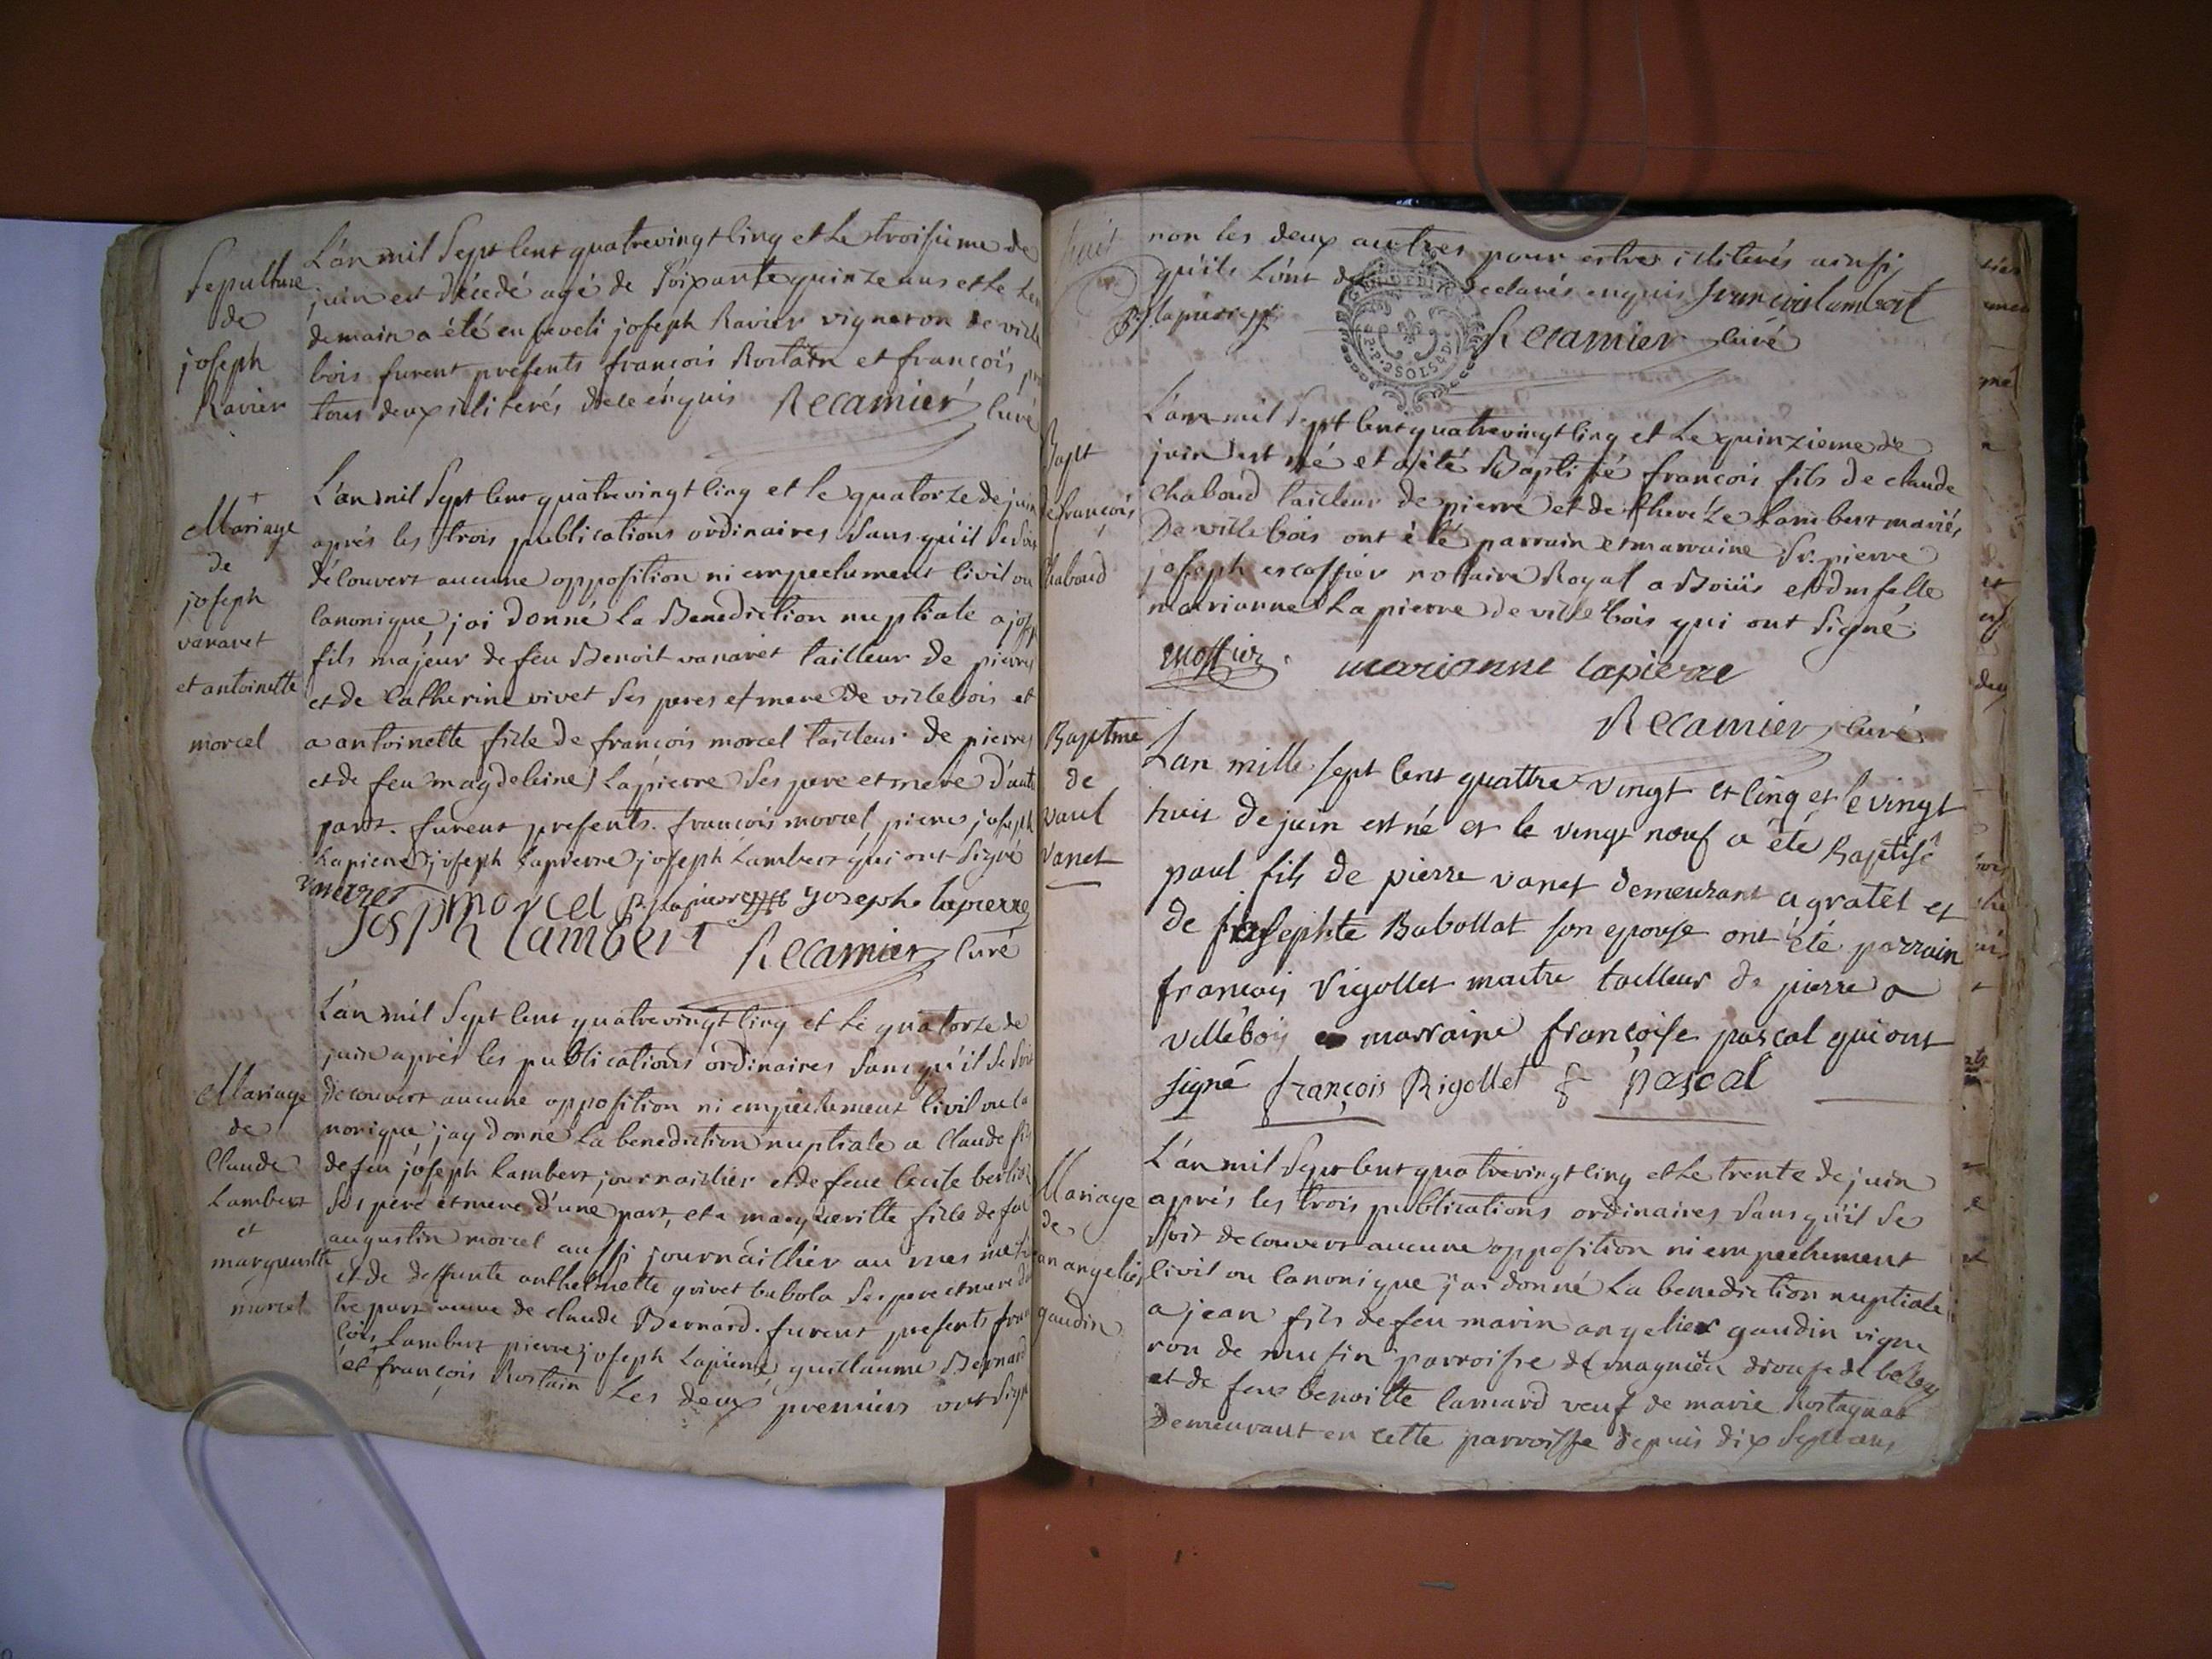 Sepulture
de
joseph
Ravier
L'an mil sept cent quatrevingt cinq et le troisieme de
juin est décédé agé de soixante quinze ans et le len
demain a été enseveli joseph Ravier vigneron de ville
bois furent présents françois Rostain et françois
tous deux iliterés de ce enquis Recamier curé
Mariage
de
joseph
vanaret
et antoinette
morcel
L'an mil sept cent quatrevingt cinq et le quatorze de juin
aprés les trois publications ordinaires sans qu'il se soit
découvert aucune opposition ni empechement civil ou
canonique, jai donné la Benediction nuptiale a joseph
fils majeur de feu Benoit vanaret tailleur de pierres
et de Catherine vivet ses peres et mere de villebois et
a antoinette fille de françois morcel tailleur de pierres
et de feu magdeleine Lapierre ses pere et mere d'autre
part. furent presents. françois morcel, pierre joseph
Lapierre joseph Lapierre joseph Lambert qui ont signé
vnaret morcel pj lapierre joseph lapierre
josph lambert Recamier curé
Mariage
de
Claude
Lambert
et
marguerite
morcel
L'an mil sept cent quatrevingt cinq et le quatorze de
juin aprés les publications ordinaires sans qu'il se soit
decouvert aucune opposition ni empechement civil ou ca
nonique jay donné la benediction nuptiale a Claude fils
de feu joseph Lambert journaillier et de feue
ses pere et mere d'une part, et a marguerite fille de feu
augustin morcel aussi journaillier au mes
et de deffunte anthelmette grivet babola ses pere et mere d'au
tre part veuve de claude Bernard. furent presents fran
çois Lambert pierre joseph Lapierre guillaume Bernard
et françois Rostain Les deux premiers ont signé
huit
non les deux autres pour estre iliterés ainsi
qu'ils l'ont declarés enquis françois lambert
pj. lapierre Recamier curé
Bapt
de françois
Chaboud
L'an mil sept cent quatrevingt cinq et le quinzieme de
juin est né et a été Baptisé françois fils de claude
chaboud tailleur de pierre et de thereze Lambert mariés
De villebois ont été parrain et marraine Sr. pierre
joseph escoffier nottaire Royal a Bouis et dmselle
marianne Lapierre de ville bois qui ont signé
escoffier marianne lapierre
Recamier curé
Baptme
de
paul
vanet
L'an mille sept cent quattre vingt et cinq et le vingt
huit de juin est né et le vingt nouf a été Baptisé
paul fils de pierre vanet demeurant a gratet et
de josephte Babollat son epouse ont été parrain
francois Rigollet maitre tailleur de pierre a
villebois marraine françoise pascal qui ont
signé françois Rigollet f pascal
Mariage
de
jean angelier
gaudin
L'an mil sept cent quatrevingt cinq et le trente de juin
aprés les trois publications ordinaires sans qu'il se
soit decouvert aucune opposition ni empechement
civil ou canonique j'ai donné la benediction nuptiale
a jean fils de feu marin angelier gaudin vigne
ron de musin parroisse de magnieu diouse de beley
et de feue benoitte lamard veuf de marie Rostagnat
demeurant en cette parroisse depuis dix sept ans